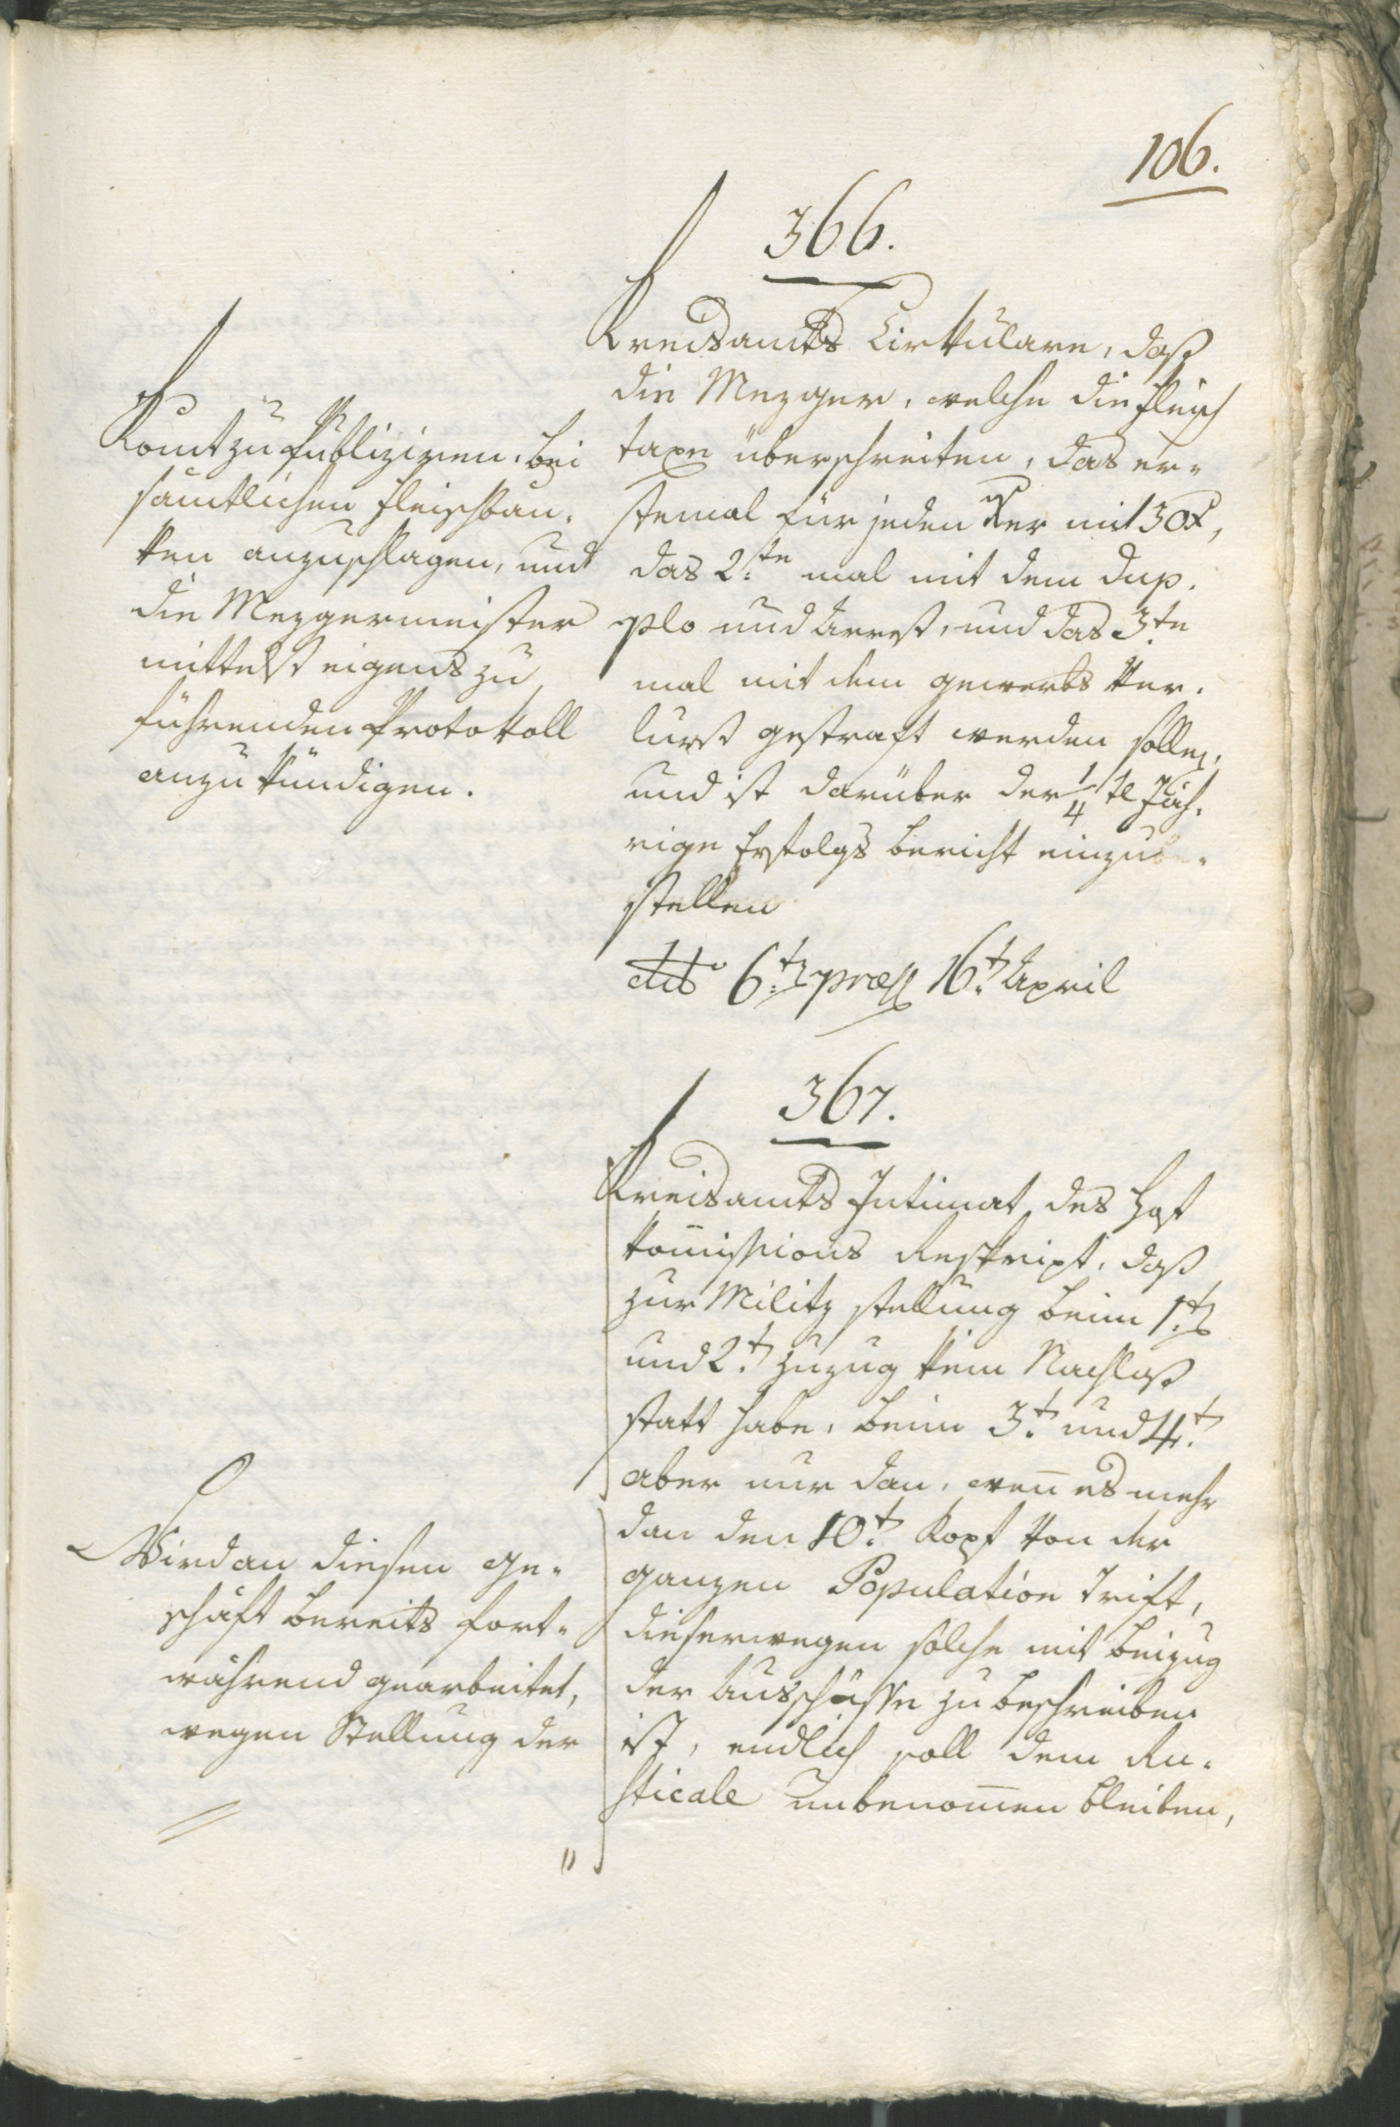 106.
366.
Kreisamts Cirkulare, daß
die Mezger, welche die Fleisch
taxe überschreiten, das er-
stemal für jeden Xer mit 30 X,
das 2.te mal mit dem Du-
plo und Arrest, und das 3.te
mal mit dem gewerbs Ver-
lurst gestraft werden sollen,
und ist darüber der 1/4 tl Jäh-
rige Erfolgs bericht einzu-
stellen
dto 6.t præs 16.t April
Komt zu Publiziren, bei
sämtlichen Fleischbän-
ken anzuschlagen, und
die Mezgermeister
mittelst eigens zu
führenden Protokoll
anzukündigen.
367.
Kreisamts Intimat des Hof
kom̅issions Reskript, daß
zur Militz stellung beim 1.t
und 2.t Zuzug kein Nachlaß
statt habe, beim 3.t und 4.t
aber nur dan, wen̅ es mehr
dan den 10.t Kopf von der
ganzen Population trift,
dieserwegen solche mit beizug
der Ausschüsse zu beschreiben
ist, endlich soll dem Ru-
sticale unbenom̅en bleiben,
Wird an diesen ge-
schäft bereits fort-
während gearbeitet,
wegen Stellung der